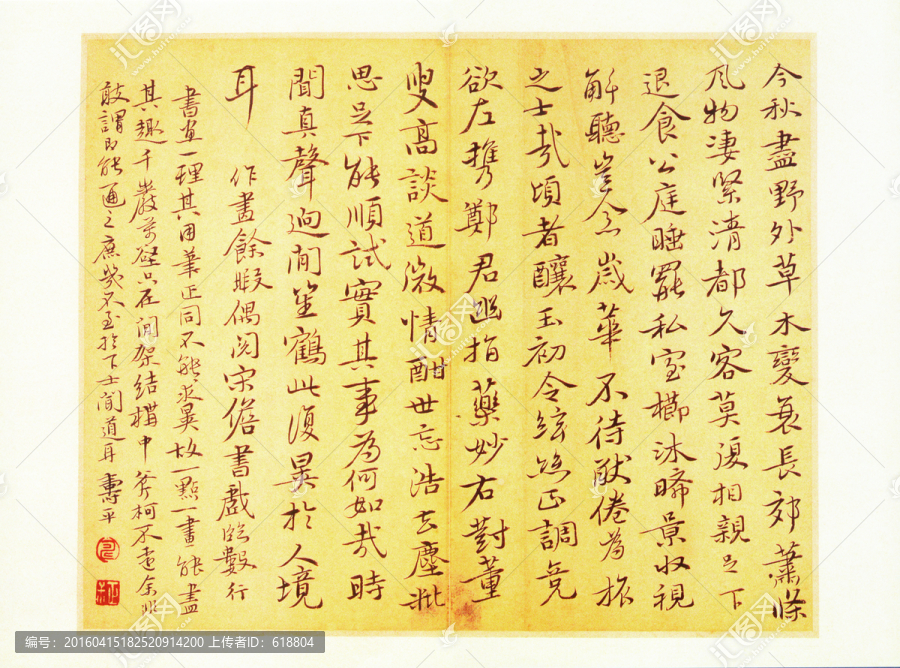 今秋盡野外草木變衰長郊蕭條
風物淒緊清都久客莫復相親足下
退食公庭睡罷私室櫛沐晞景收視
解聽豈念歲華不待猒倦為旅
之士哉頃者釀玉初令絃絲正調竟
欲左攜鄭君幽指藥妙右對董
叟高談道微情酣世忘浩去塵粃
思足下能順試實其事為何如哉時
聞真聲迥閒笙鶴此復異於人境
耳 作畫餘暇偶閱宋儋書戲臨數行
書畫一理其用筆正同不能求異故一點一畫能盡
其趣千巖萬壑只在間架結構中斧柯不遠余非
敢謂即能通之庶幾不至於下士聞道耳 壽平
编号：20160415182520914200 上传者ID：618804